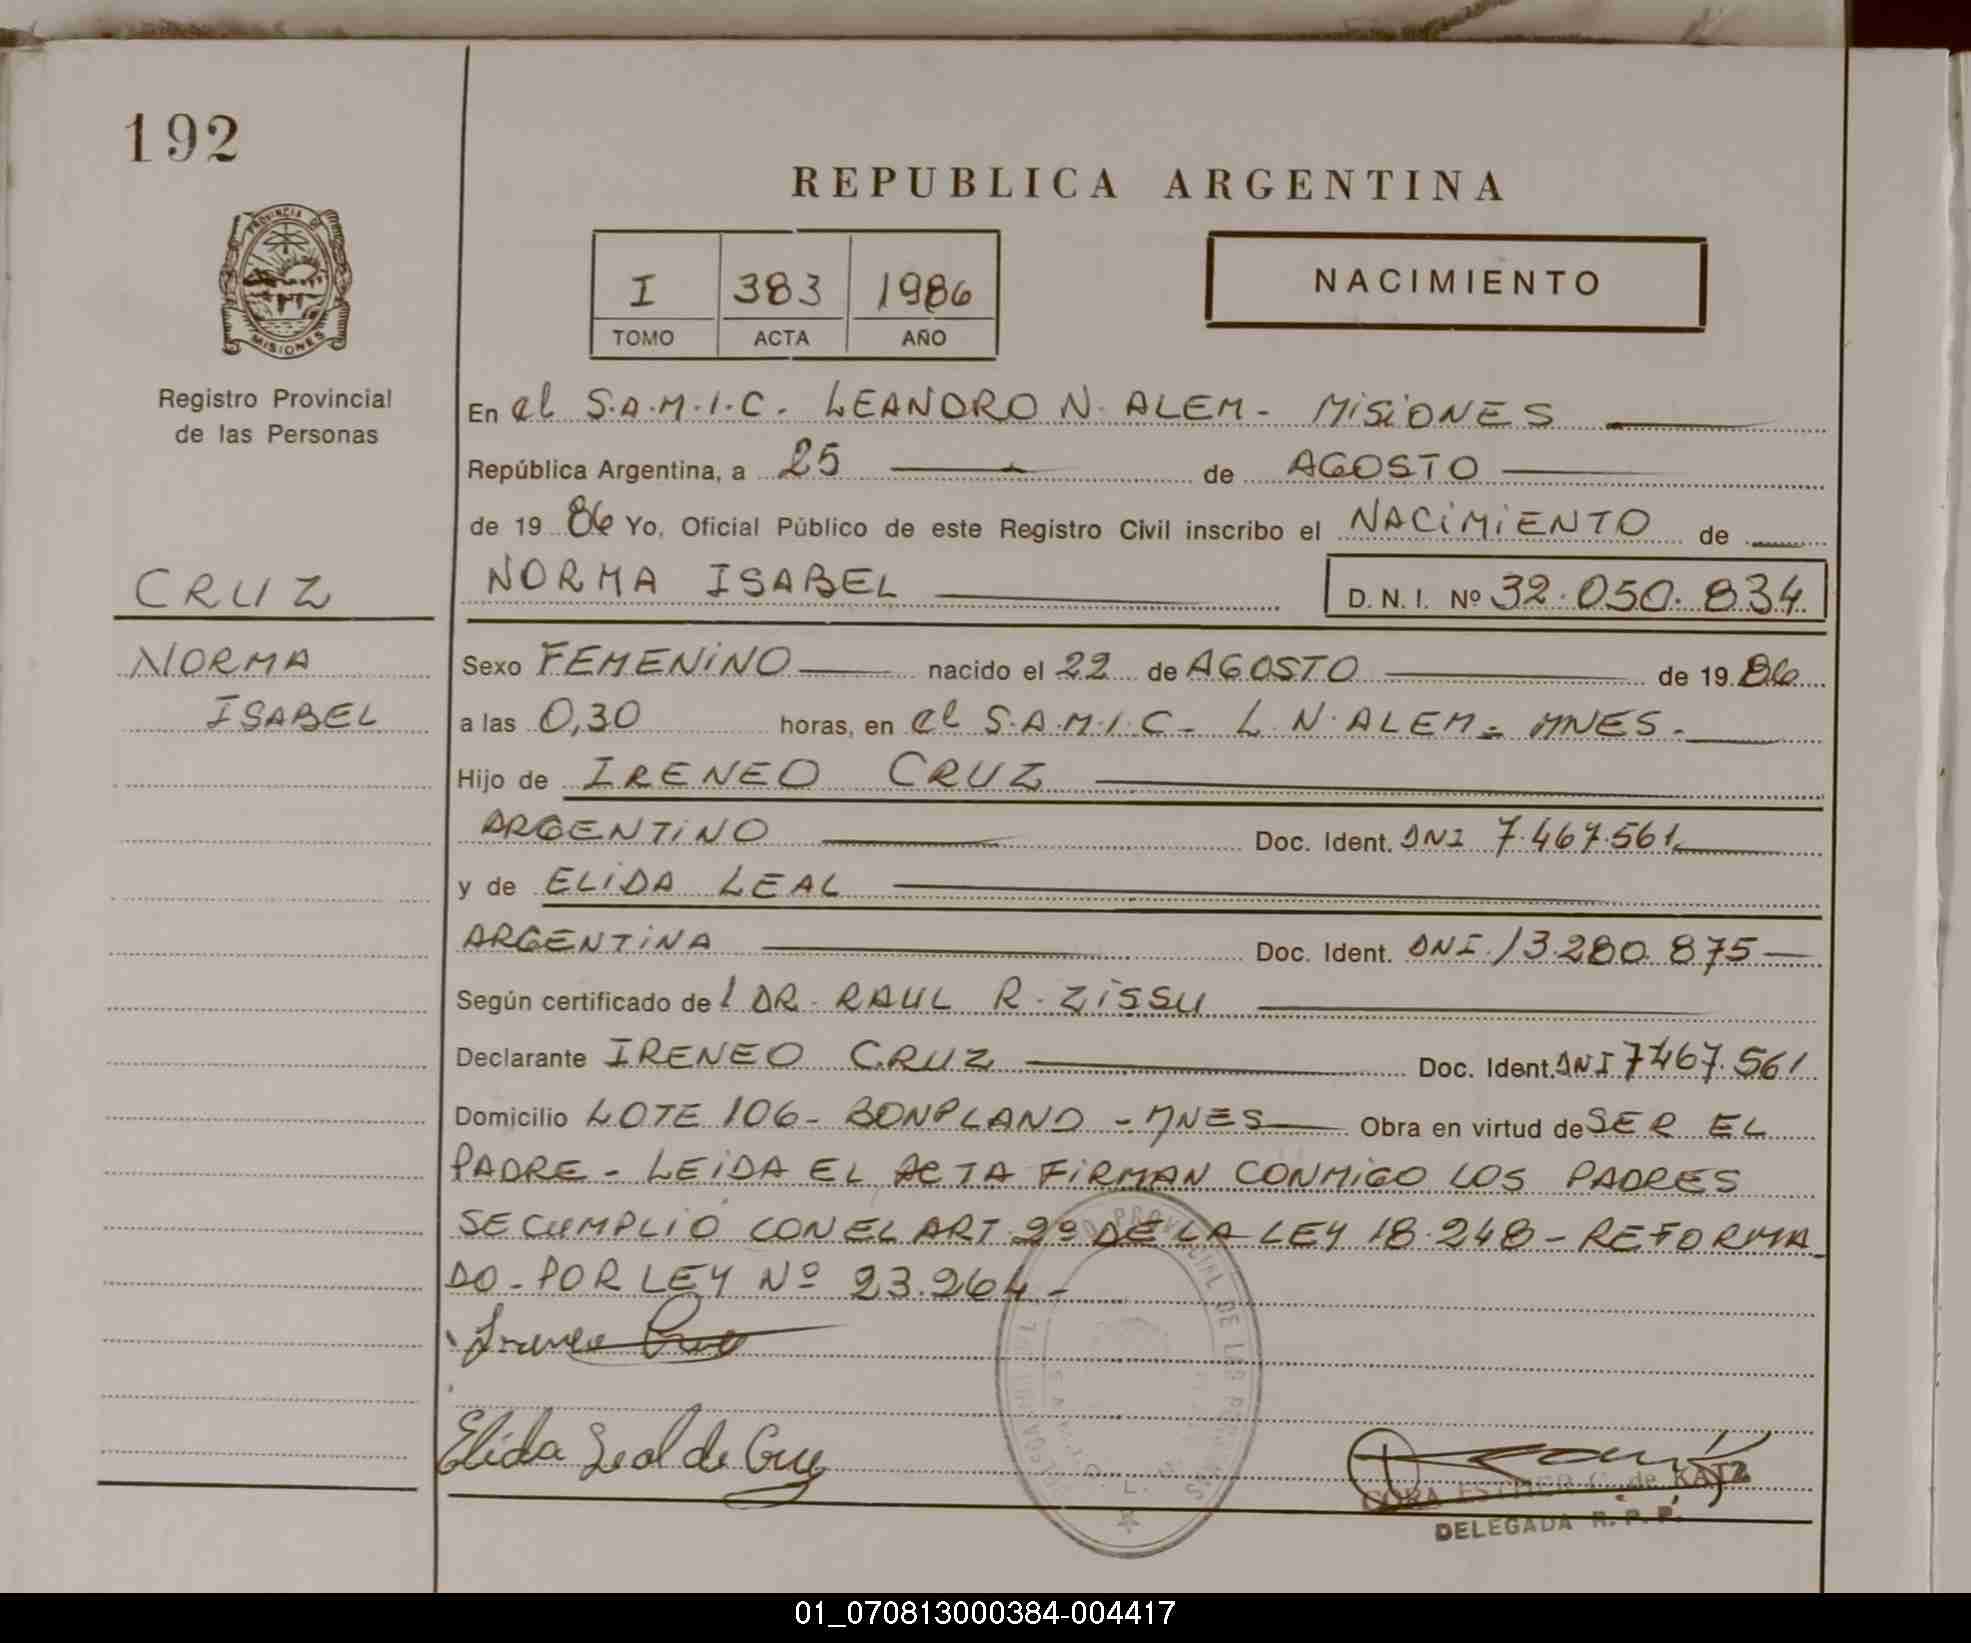 192
REPUBLICA ARGENTINA
PROVINCIA DE
MISIONES
I 383 1986
TOMO ACTA AÑO
NACIMIENTO
Registro Provincial
de las Personas
En el S.A.M.I.C. LEANDRO N. ALEM - MISIONES
República Argentina, a 25 de AGOSTO
de 19 86 Yo, Oficial Público de este Registro Civil inscribo el NACIMIENTO de
NORMA ISABEL D.N.I. Nº 32.050.834
CRUZ
NORMA
ISABEL
Sexo FEMENINO nacido el 22 de AGOSTO de 19 86
a las 0,30 horas, en el S.A.M.I.C - L. N. ALEM - MNES.-
Hijo de IRENEO CRUZ
ARGENTINO Doc. Ident. DNI 7.467.561
y de ELIDA LEAL
ARGENTINA Doc. Ident. DNI. 13.280.875
Según certificado del DR. RAUL R. ZISSU
Declarante IRENEO CRUZ Doc. Ident. DNI 7467.561
Domicilio LOTE 106 - BONPLAND - MNES Obra en virtud de SER EL
PADRE - LEIDA EL ACTA FIRMAN CONMIGO LOS PADRES
SE CUMPLIO CON EL ART 2º DE LA LEY 18.248 - REFORMA
DO - POR LEY Nº 23.264 -
Ireneo Cruz
Elida Leal de Cruz
CORA ESTHER C. de KATZ
DELEGADA R.P.P.
01_070813000384-004417